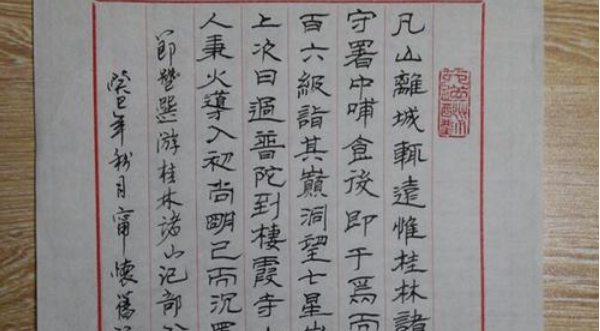 凡山離城輒遠惟桂林諸
守署中晡食後即于焉而
百六級詣其巔洞望七星
上次日過普陀到棲霞寺
人秉火導入初尚明已而沉
節楚巽游桂林諸山記部
癸巳年秋月甯懷舊